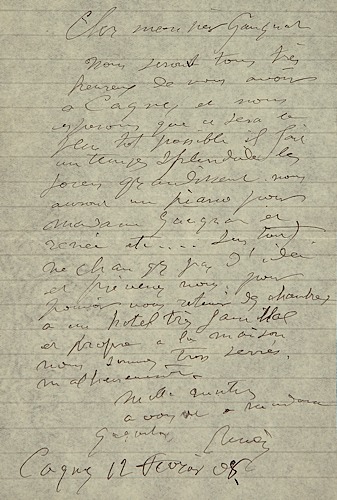 Cher monsieur Gangnat
nous serons tous très
heureux de vous avoir
à Cagnes et nous
esperons que ce sera le
plus tot possible il fait
un temps splendide les
nous
aurons un piano pour
madame Gangnat et
renée etc.... Surtout
ne changez pas d'idée
et prévenez nous pour
pouvoir vous retenir des chambres
a un hotel très familial
et propre a la maison
nous sommes très serrés.
malheureusement.
mille amities
a vous et a madame
Gangnat Renoir
Cagnes 12 Fevrier 08